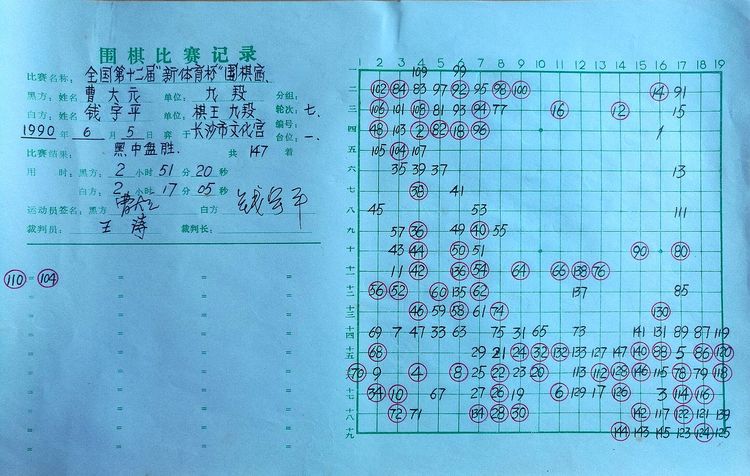 围棋比赛记录
比赛名称: 全国第十二届"新体育杯"围棋赛
黑方: 姓名 曹大元 单位: 九段 分组:
白方: 姓名 钱宇平 单位: 棋王 九段 轮次: 七.
1990年 6月 5日 赛于 长沙市文化宫 编号: 台位: 一.
比赛结果: 黑中盘胜. 共 147 着
用时: 黑方: 2小时 51分 20秒
白方: 2小时 17分 05秒
运动员签名: 黑方 白方 钱宇平
裁判员: 王涛 裁判长:
110 = 104
1 2 3 4 5 6 7 8 9 10 11 12 13 14 15 16 17 18 19
109 99
二 102 84 83 97 92 95 98 100 14 91
106 101 108 81 93 94 77 16 12 15
四 48 103 2 82 18 96 1
五 105 104 107
六 35 39 37 13
七 38 41
八 45 53 111
九 57 36 49 40 55
十 43 44 50 51 90 80
十一 11 42 36 54 64 66 138 76
十二 56 52 60 135 62 137 85
十三 46 59 58 61 74 130
十四 69 7 47 33 63 75 31 65 73 141 131 89 87 119
十五 68 29 21 24 32 132 133 127 147 140 88 5 86 120
70 9 4 8 25 22 23 20 113 112 128 146 115 78 79 118
十七 34 10 67 27 26 19 6 129 17 126 3 114 116
十八 72 71 134 28 30 142 117 122 121 139
十九 144 143 145 123 124 125